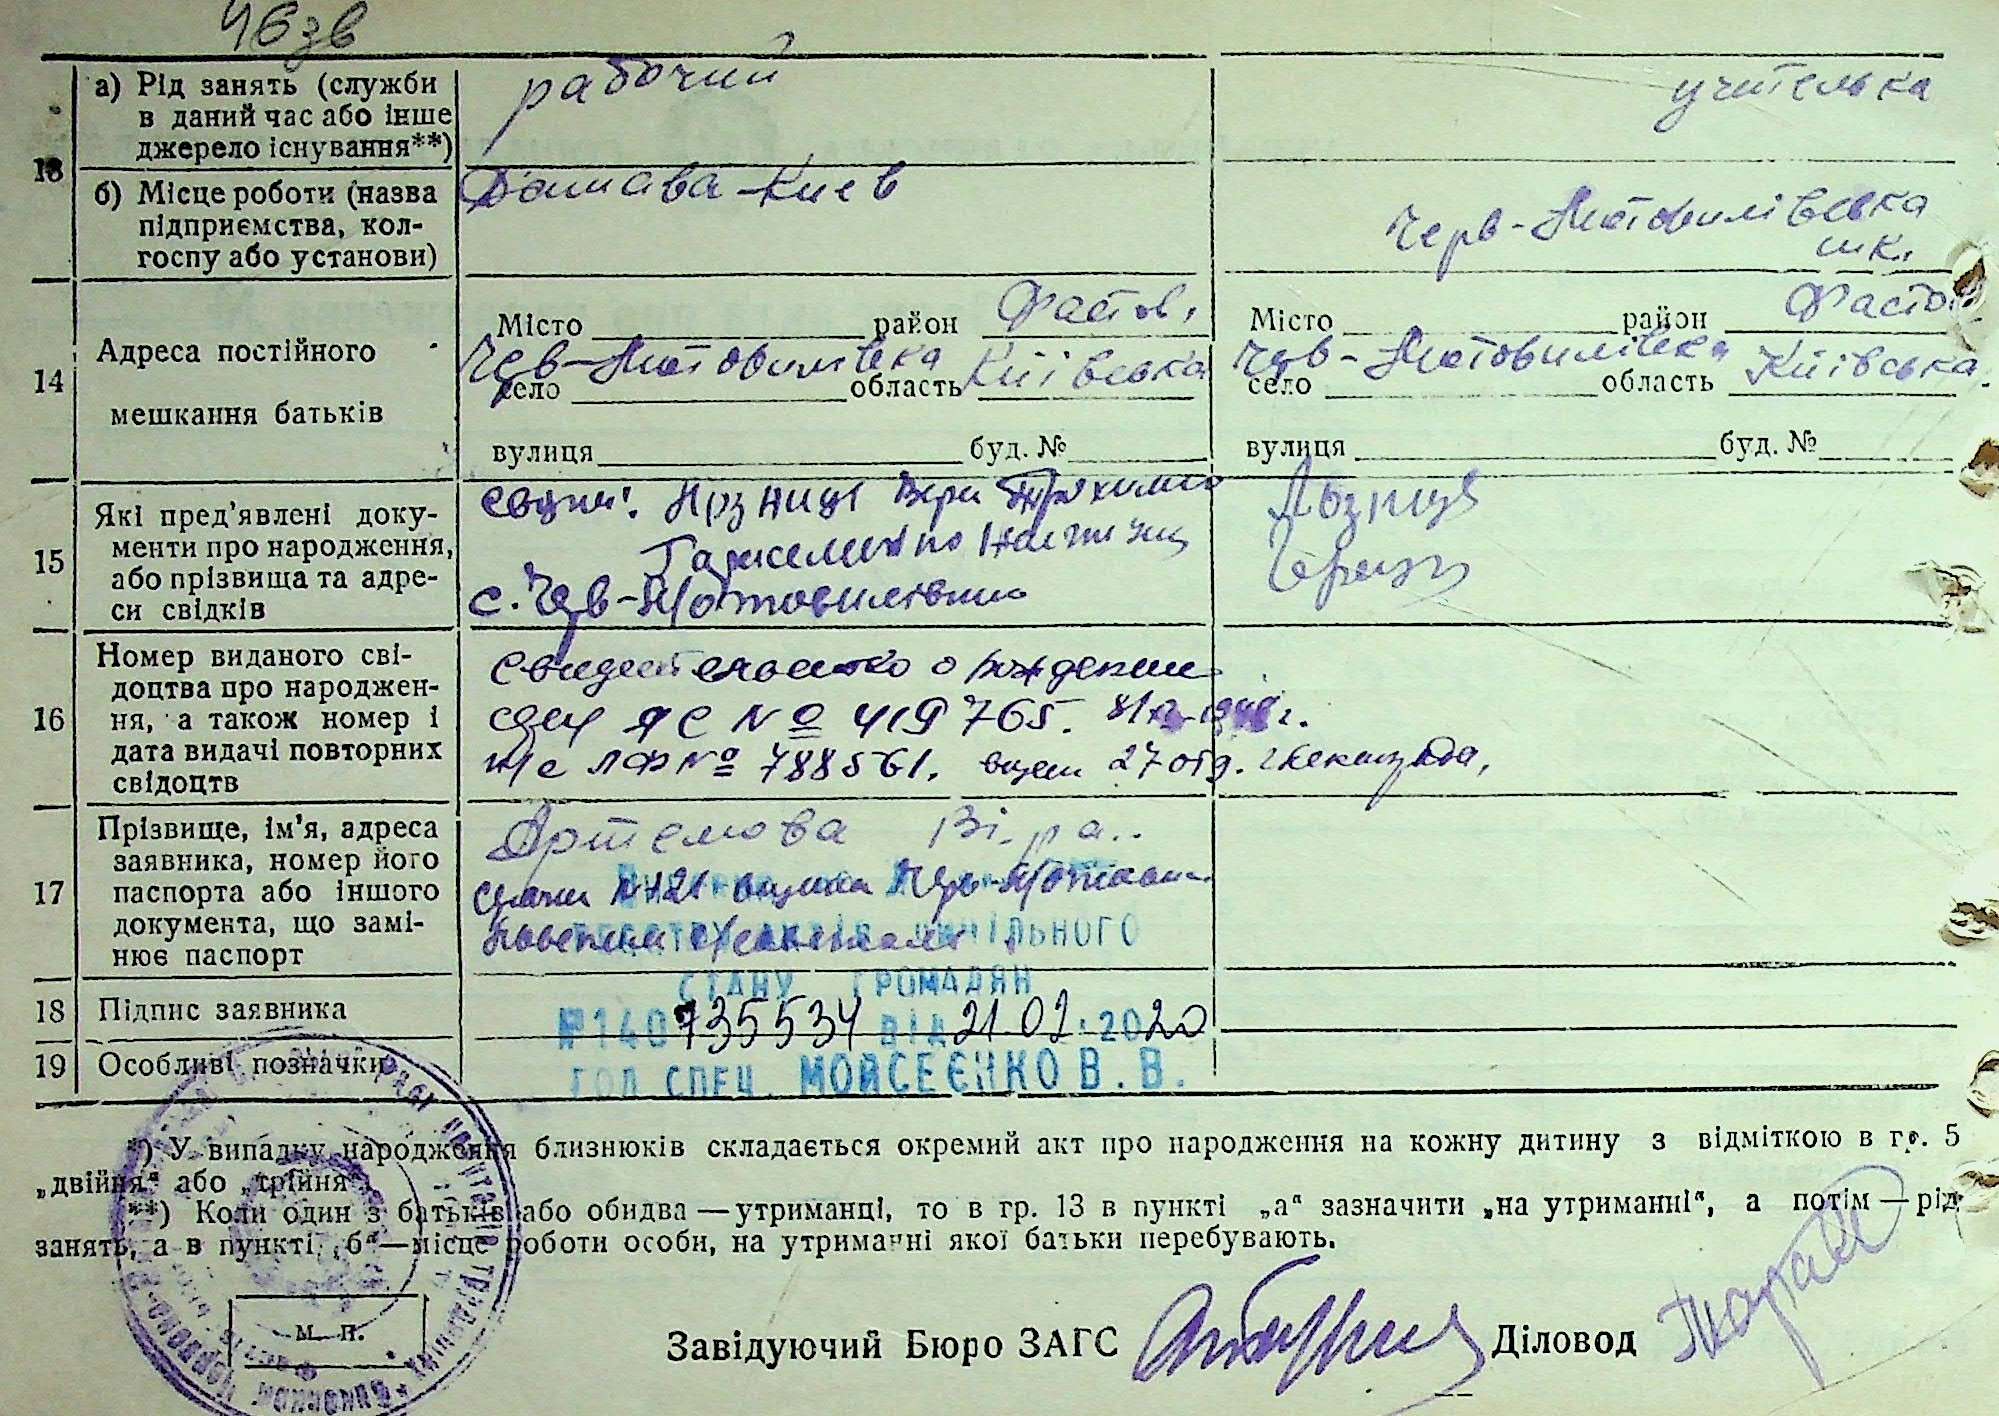 46зв
13
а) Рід занять (служби
в даний час або інше
джерело існування**)
рабочий
учителька
б) Місце роботи (назва
підприємства, кол-
госпу або установи)
Дашава-Киев
Черв-Мотовилівська
шк.
14
Адреса постійного
мешкання батьків
Місто район Фастов.
Черв-Мотовилівка Київська
село область
вулиця буд. №
Місто район Фастов
Черв-Мотовилівка Київська
село область
вулиця буд. №
15
Які пред'явлені доку-
менти про народження,
або прізвища та адре-
си свідків
с. Черв-Мотовилівка
16
Номер виданого сві-
доцтва про народжен-
ня, а також номер і
дата видачі повторних
свідоцтв
свидетельство о рождении
ЯС № 419765.
ЛФ № 788561. 27 отд.
17
Прізвище, ім'я, адреса
заявника, номер його
паспорта або іншого
документа, що замі-
нює паспорт
Артемова Віра
№121
18
Підпис заявника
19
Особливі позначки
СТАНУ ГРОМАДЯН
№140 735534 від 21.02.2020
ГОЛ СПЕЦ. МОЙСЕЄНКО В. В.
*) У випадку народження близнюків складається окремий акт про народження на кожну дитину з відміткою в гр. 5
„двійня“ або „трійня“.
**) Коли один з батьків або обидва — утриманці, то в гр. 13 в пункті „а“ зазначити „на утриманні“, а потім — рід
занять, а в пункті „б“ — місце роботи особи, на утриманні якої батьки перебувають.
м. п.
Завідуючий Бюро ЗАГС Діловод